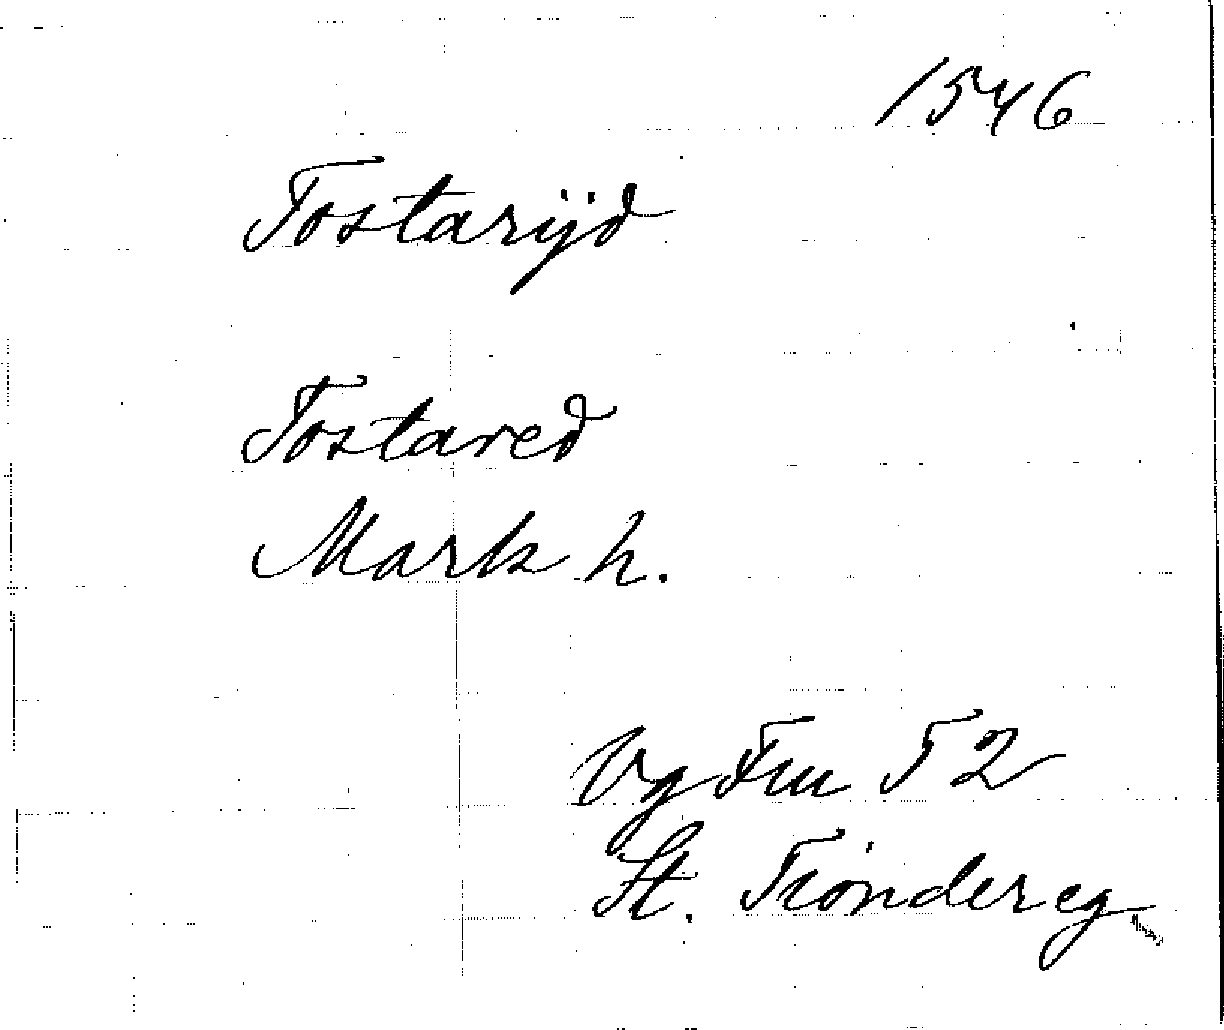 1546
Tostarijd
Tostared
Mark h.
Vg Fru 52
St. Tionder eg.